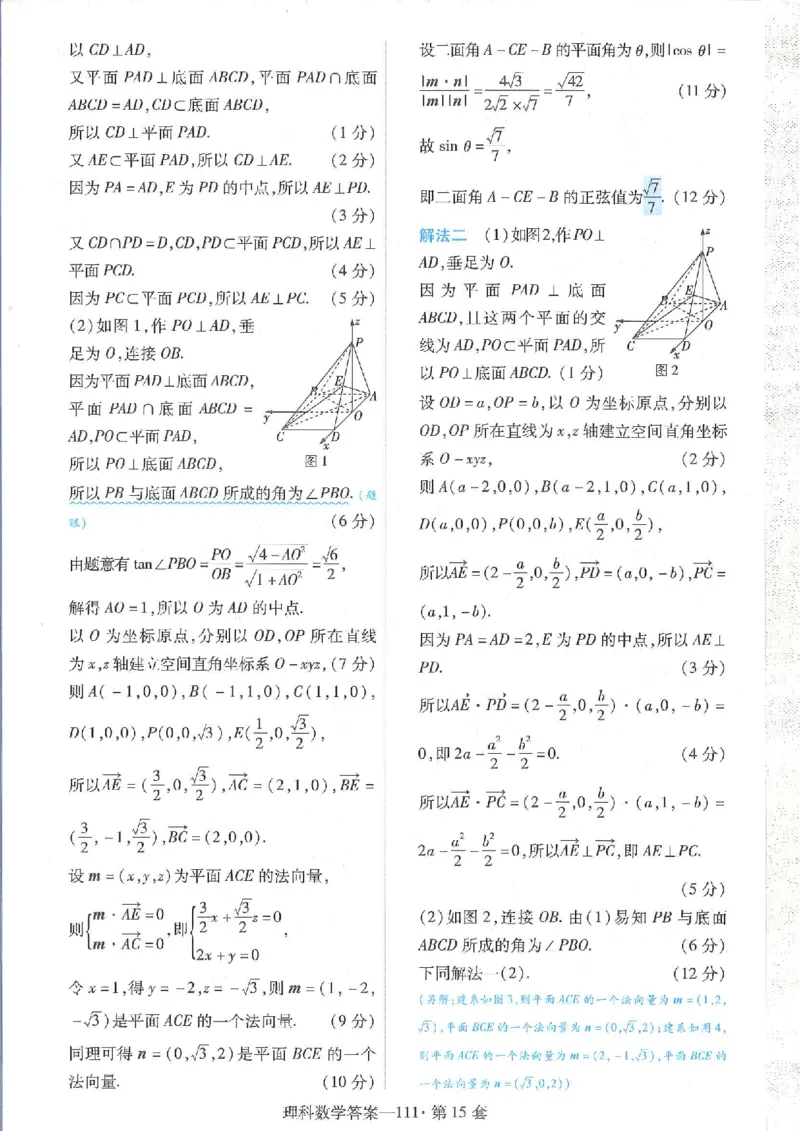 以 CD⊥AD,
又平面 PAD⊥底面 ABCD,平面 PAD∩底面
ABCD=AD,CD⊂底面 ABCD,
所以 CD⊥平面 PAD. (1分)
又 AE⊂平面 PAD,所以 CD⊥AE. (2分)
因为 PA=AD,E 为 PD 的中点,所以 AE⊥PD.
(3分)
又 CD∩PD=D,CD,PD⊂平面 PCD,所以 AE⊥
平面 PCD. (4分)
因为 PC⊂平面 PCD,所以 AE⊥PC. (5分)
(2)如图 1,作 PO⊥AD,垂
足为 O,连接 OB.
因为平面 PAD⊥底面 ABCD,
平面 PAD∩底面 ABCD=
AD,PO⊂平面 PAD,
所以 PO⊥底面 ABCD,
z
P
B
E
A
y
O
C
D
x
图 1
所以 PB 与底面 ABCD 所成的角为∠PBO.(题
眼) (6分)
由题意有 tan∠PBO=PO/OB=√(4-AO²)/√(1+AO²)=√6/2,
解得 AO=1,所以 O 为 AD 的中点.
以 O 为坐标原点,分别以 OD,OP 所在直线
为 x,z 轴建立空间直角坐标系 O-xyz,(7分)
则 A(-1,0,0),B(-1,1,0),C(1,1,0),
D(1,0,0),P(0,0,√3),E(1/2,0,√3/2),
所以AE→=(3/2,0,√3/2),AC→=(2,1,0),BE→=
(3/2,-1,√3/2),BC→=(2,0,0).
设 m=(x,y,z)为平面 ACE 的法向量,
则{m·AE→=0, m·AC→=0,即{3/2x+√3/2z=0, 2x+y=0,
令 x=1,得 y=-2,z=-√3,则 m=(1,-2,
-√3)是平面 ACE 的一个法向量. (9分)
同理可得 n=(0,√3,2)是平面 BCE 的一个
法向量. (10分)
设二面角 A-CE-B 的平面角为 θ,则|cos θ|=
|m·n|/|m||n|=4√3/(2√2×√7)=√42/7, (11分)
故 sin θ=√7/7,
即二面角 A-CE-B 的正弦值为√7/7. (12分)
解法二 (1)如图2,作PO⊥
AD,垂足为 O.
因为平面 PAD⊥底面
ABCD,且这两个平面的交
线为AD,PO⊂平面PAD,所
以 PO⊥底面ABCD. (1分)
z
P
B
E
A
y
O
C
D
x
图 2
设 OD=a,OP=b,以 O 为坐标原点,分别以
OD,OP 所在直线为 x,z 轴建立空间直角坐标
系 O-xyz, (2分)
则 A(a-2,0,0),B(a-2,1,0),C(a,1,0),
D(a,0,0),P(0,0,b),E(a/2,0,b/2),
所以AE→=(2-a/2,0,b/2),PD→=(a,0,-b),PC→=
(a,1,-b).
因为 PA=AD=2,E 为 PD 的中点,所以 AE⊥
PD. (3分)
所以AE→·PD→=(2-a/2,0,b/2)·(a,0,-b)=
0,即 2a-a²/2-b²/2=0. (4分)
所以AE→·PC→=(2-a/2,0,b/2)·(a,1,-b)=
2a-a²/2-b²/2=0,所以AE→⊥PC→,即 AE⊥PC.
(5分)
(2)如图 2,连接 OB. 由(1)易知 PB 与底面
ABCD 所成的角为∠PBO. (6分)
下同解法一(2). (12分)
(另解:建系如图 3,则平面 ACE 的一个法向量为 m=(1,2,
√3),平面 BCE 的一个法向量为 n=(0,√3,2);建系如图 4,
则平面 ACE 的一个法向量为 m=(2,-1,√3),平面 BCE 的
一个法向量为 n=(√3,0,2))
理科数学答案—111·第 15 套